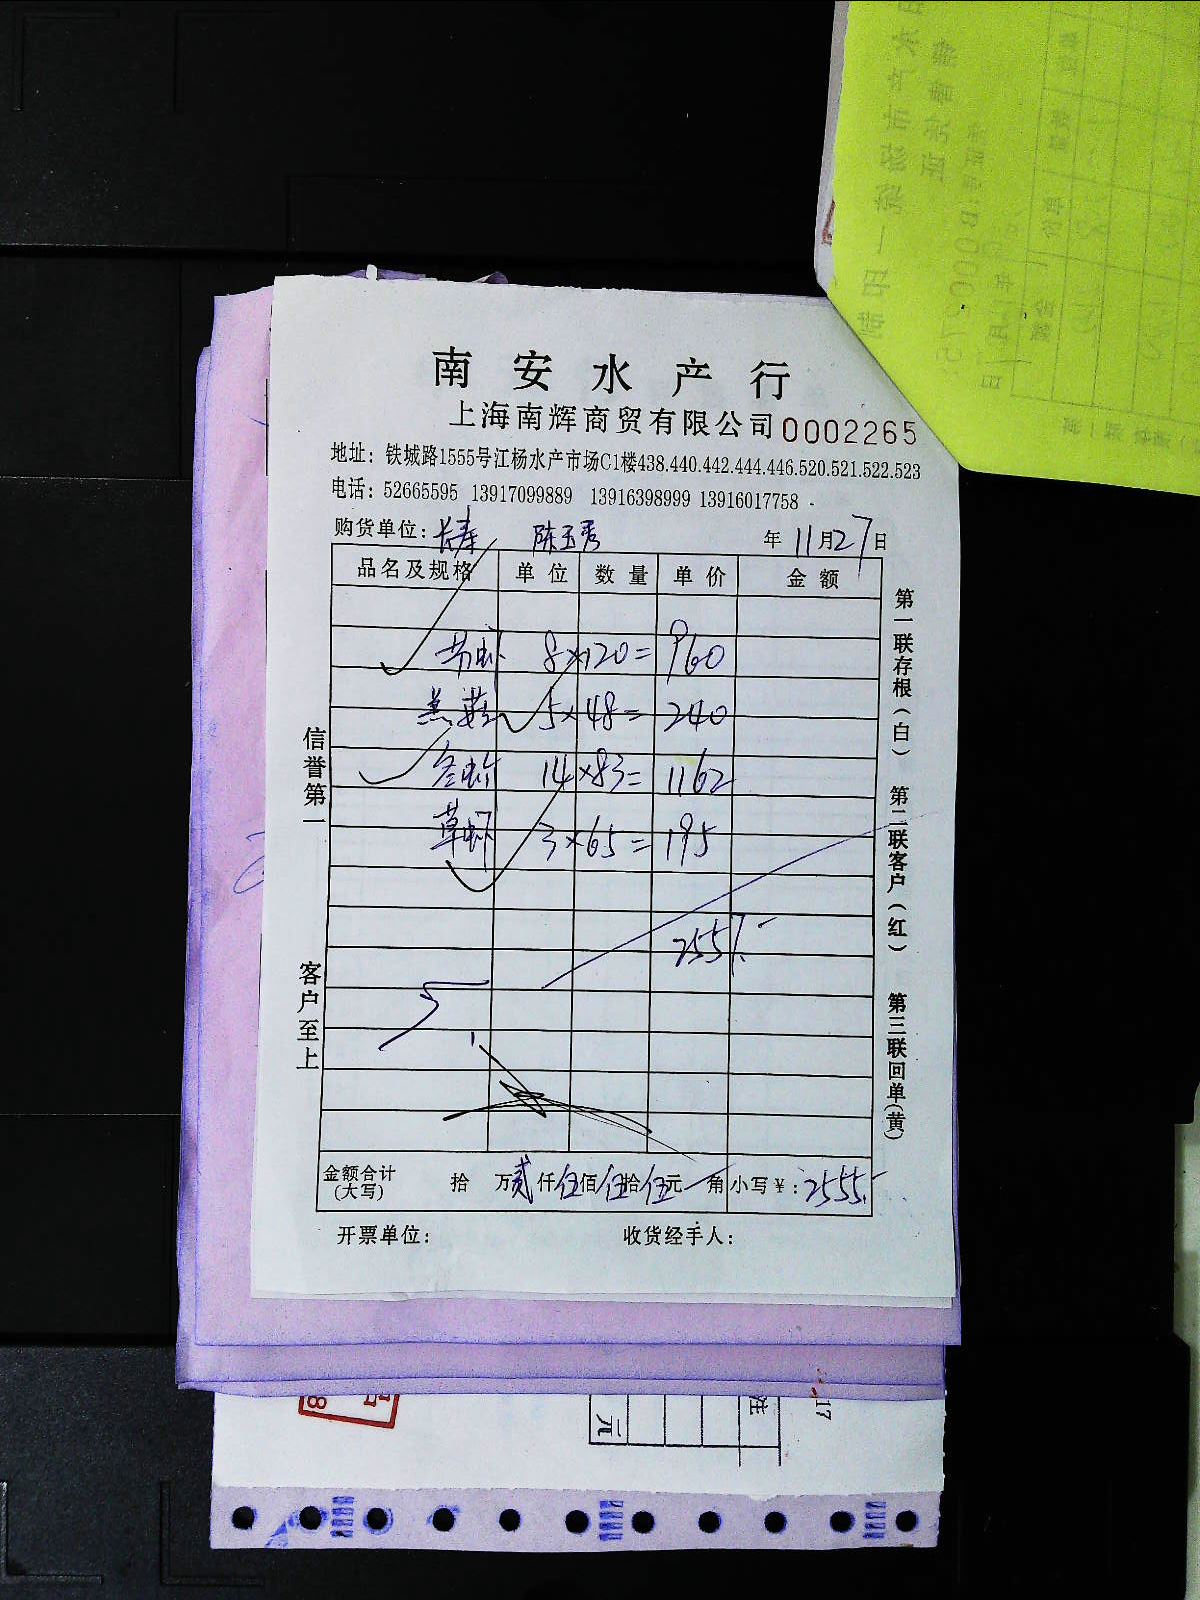 南安水产行
上海南辉商贸有限公司 0002265
地址：铁城路1555号江杨水产市场C1楼438.440.442.444.446.520.521.522.523
电话：52665595 13917099889 13916398999 13916017758
购货单位：长寿 陈玉秀 年11月27日
品名及规格 单位 数量 单价 金额
8×120=960
5×48=240
14×83=1162
草虾 3×65=195
2557.-
金额合计(大写) 拾 万贰仟伍佰伍拾伍元 角 小写￥：2555.-
开票单位： 收货经手人：
信誉第一 客户至上
第一联存根（白） 第二联客户（红） 第三联回单（黄）
注
元
17